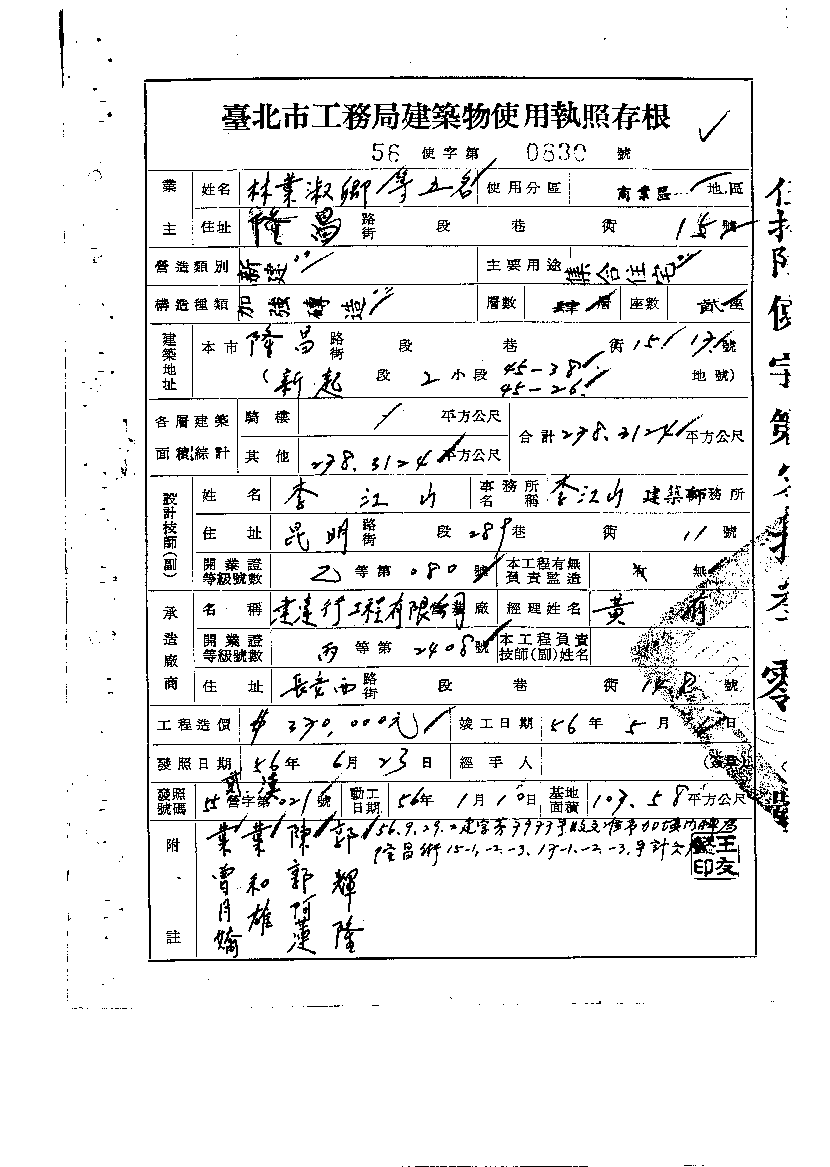 臺北市工務局建築物使用執照存根
56 使字第 0630 號
業主 姓名 林葉淑卿等五名 使用分區 商業區 地區
住址 隆昌 路街 段 巷 衖 15 號
營造類別 新建 主要用途 集合住宅
構造種類 加強磚造 層數 肆層 座數 貳座
建築地址 本市 隆昌 路街 段 巷 衖 15 17 號
(新起 段 2 小段 45-38 45-26 地號)
各層建築面積綜計 騎樓 平方公尺 合計 238.3124 平方公尺
其他 238.3124 平方公尺
設計技師(副) 姓名 李江山 事務所名稱 李江山 建築師務所
住址 昆明 路街 段 289 巷 衖 11 號
開業證等級號數 乙等第 080 號 本工程有無負責監造 有 無
承造廠商 名稱 建達行工程有限公司 廠 經理姓名 黃
開業證等級號數 丙等第 2408 號 本工程負責技師(副)姓名
住址 長安西 路街 段 巷 衖 號
工程造價 $370,000元 竣工日期 56年 5月 日
發照日期 56年 6月 23日 經手人
發照號碼 55 營字第 0216 號 動工日期 56年 1月 10日 基地面積 103.58 平方公尺
附註 葉曾月嬌 葉和雄 陳郭阿蓮 郭輝隆
56.9.29.
隆昌街15-1,-2,-3,17-1,-2,-3,號計
王友
印
使字第
零